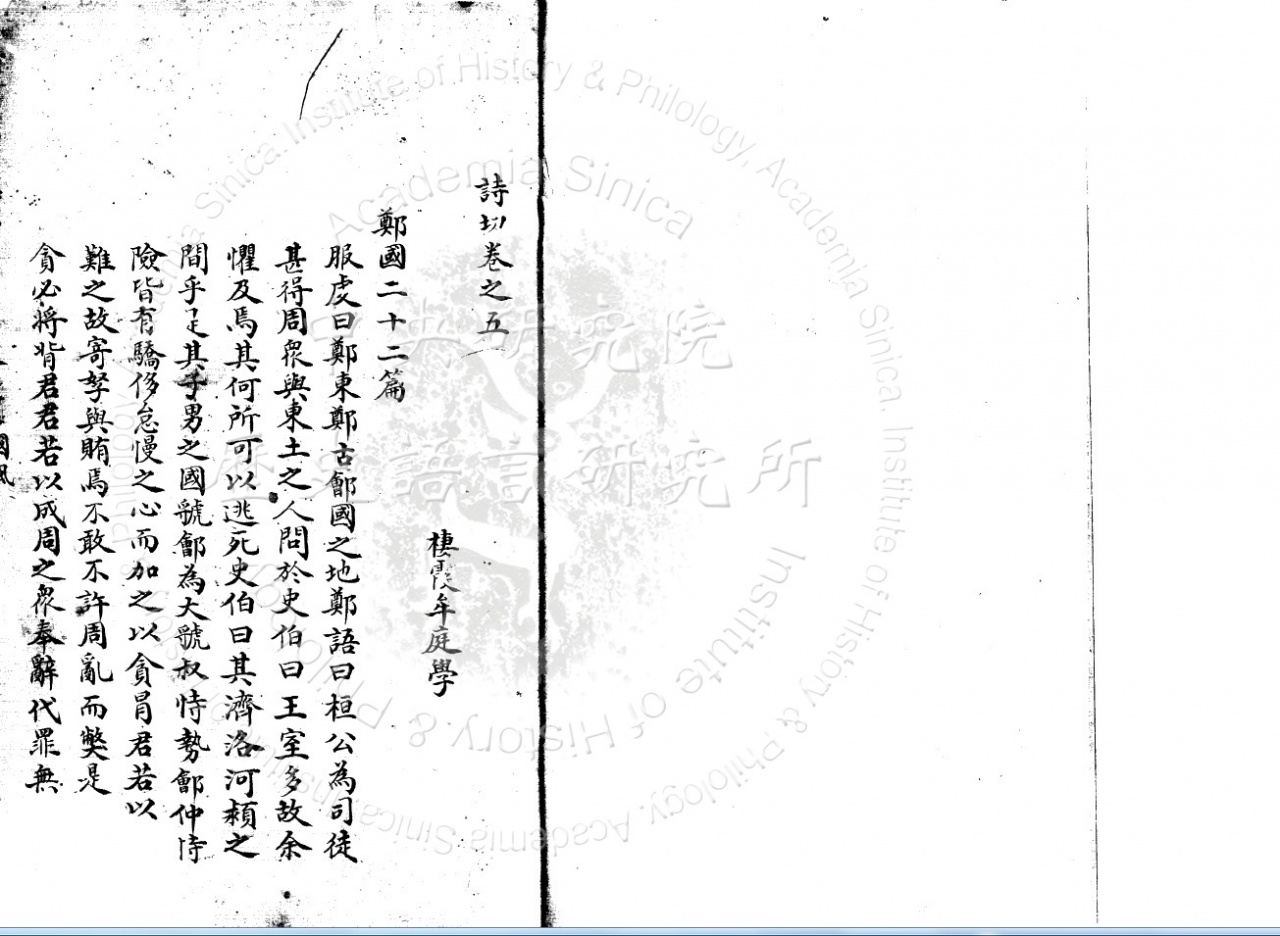 詩切卷之五
棲霞牟庭學
鄭國二十二篇
服虔曰鄭東鄭古鄶國之地鄭語曰桓公為司徒
甚得周衆與東土之人問於史伯曰王室多故余
懼及焉其何所可以逃死史伯曰其濟洛河潁之
間乎是其子男之國虢鄶為大虢叔恃勢鄶仲恃
險皆有驕侈怠慢之心而加之以貪冒君若以
難之故寄孥與賄焉不敢不許周亂而獘是
貪必將背君君若以成周之衆奉辭代罪無
國風
中央研究院
歷史語言研究所
Academia Sinica
Institute of History & Philology, Academia Sinica. Institute of History & Philology, Academia Sinica. Institute of History & Philology, Academia Sinica.